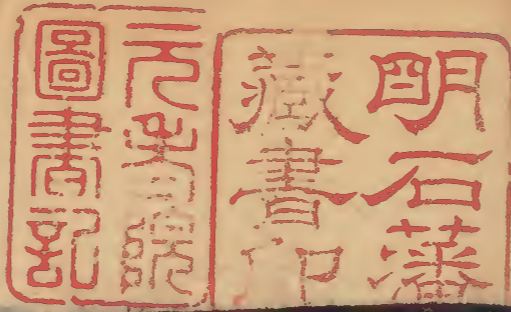 明石藩
藏書印
元老院
圖書記